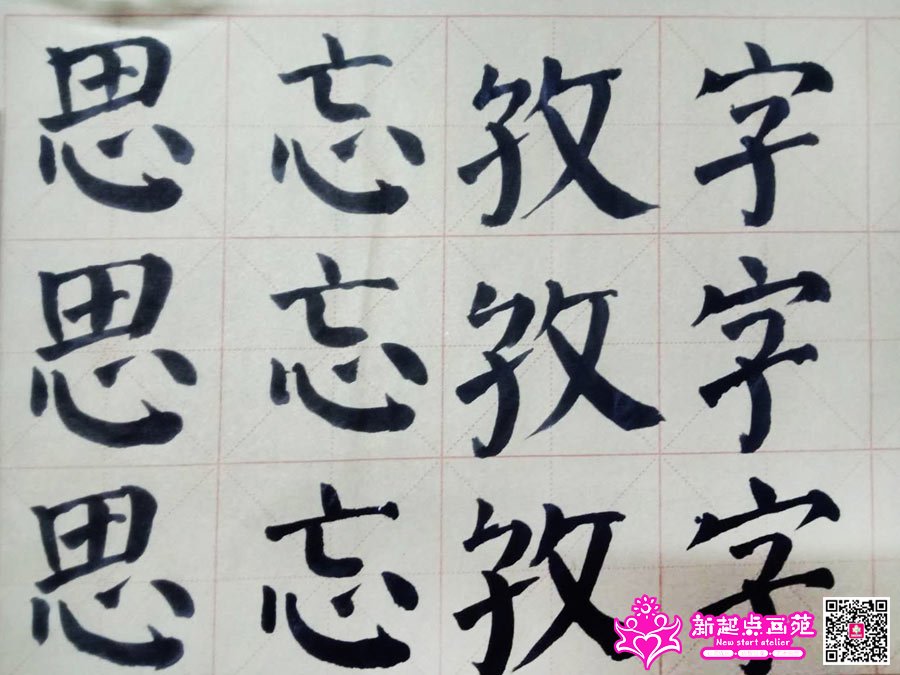 思忘孜字
思忘孜字
思忘孜字
新起点画苑
New start atelier